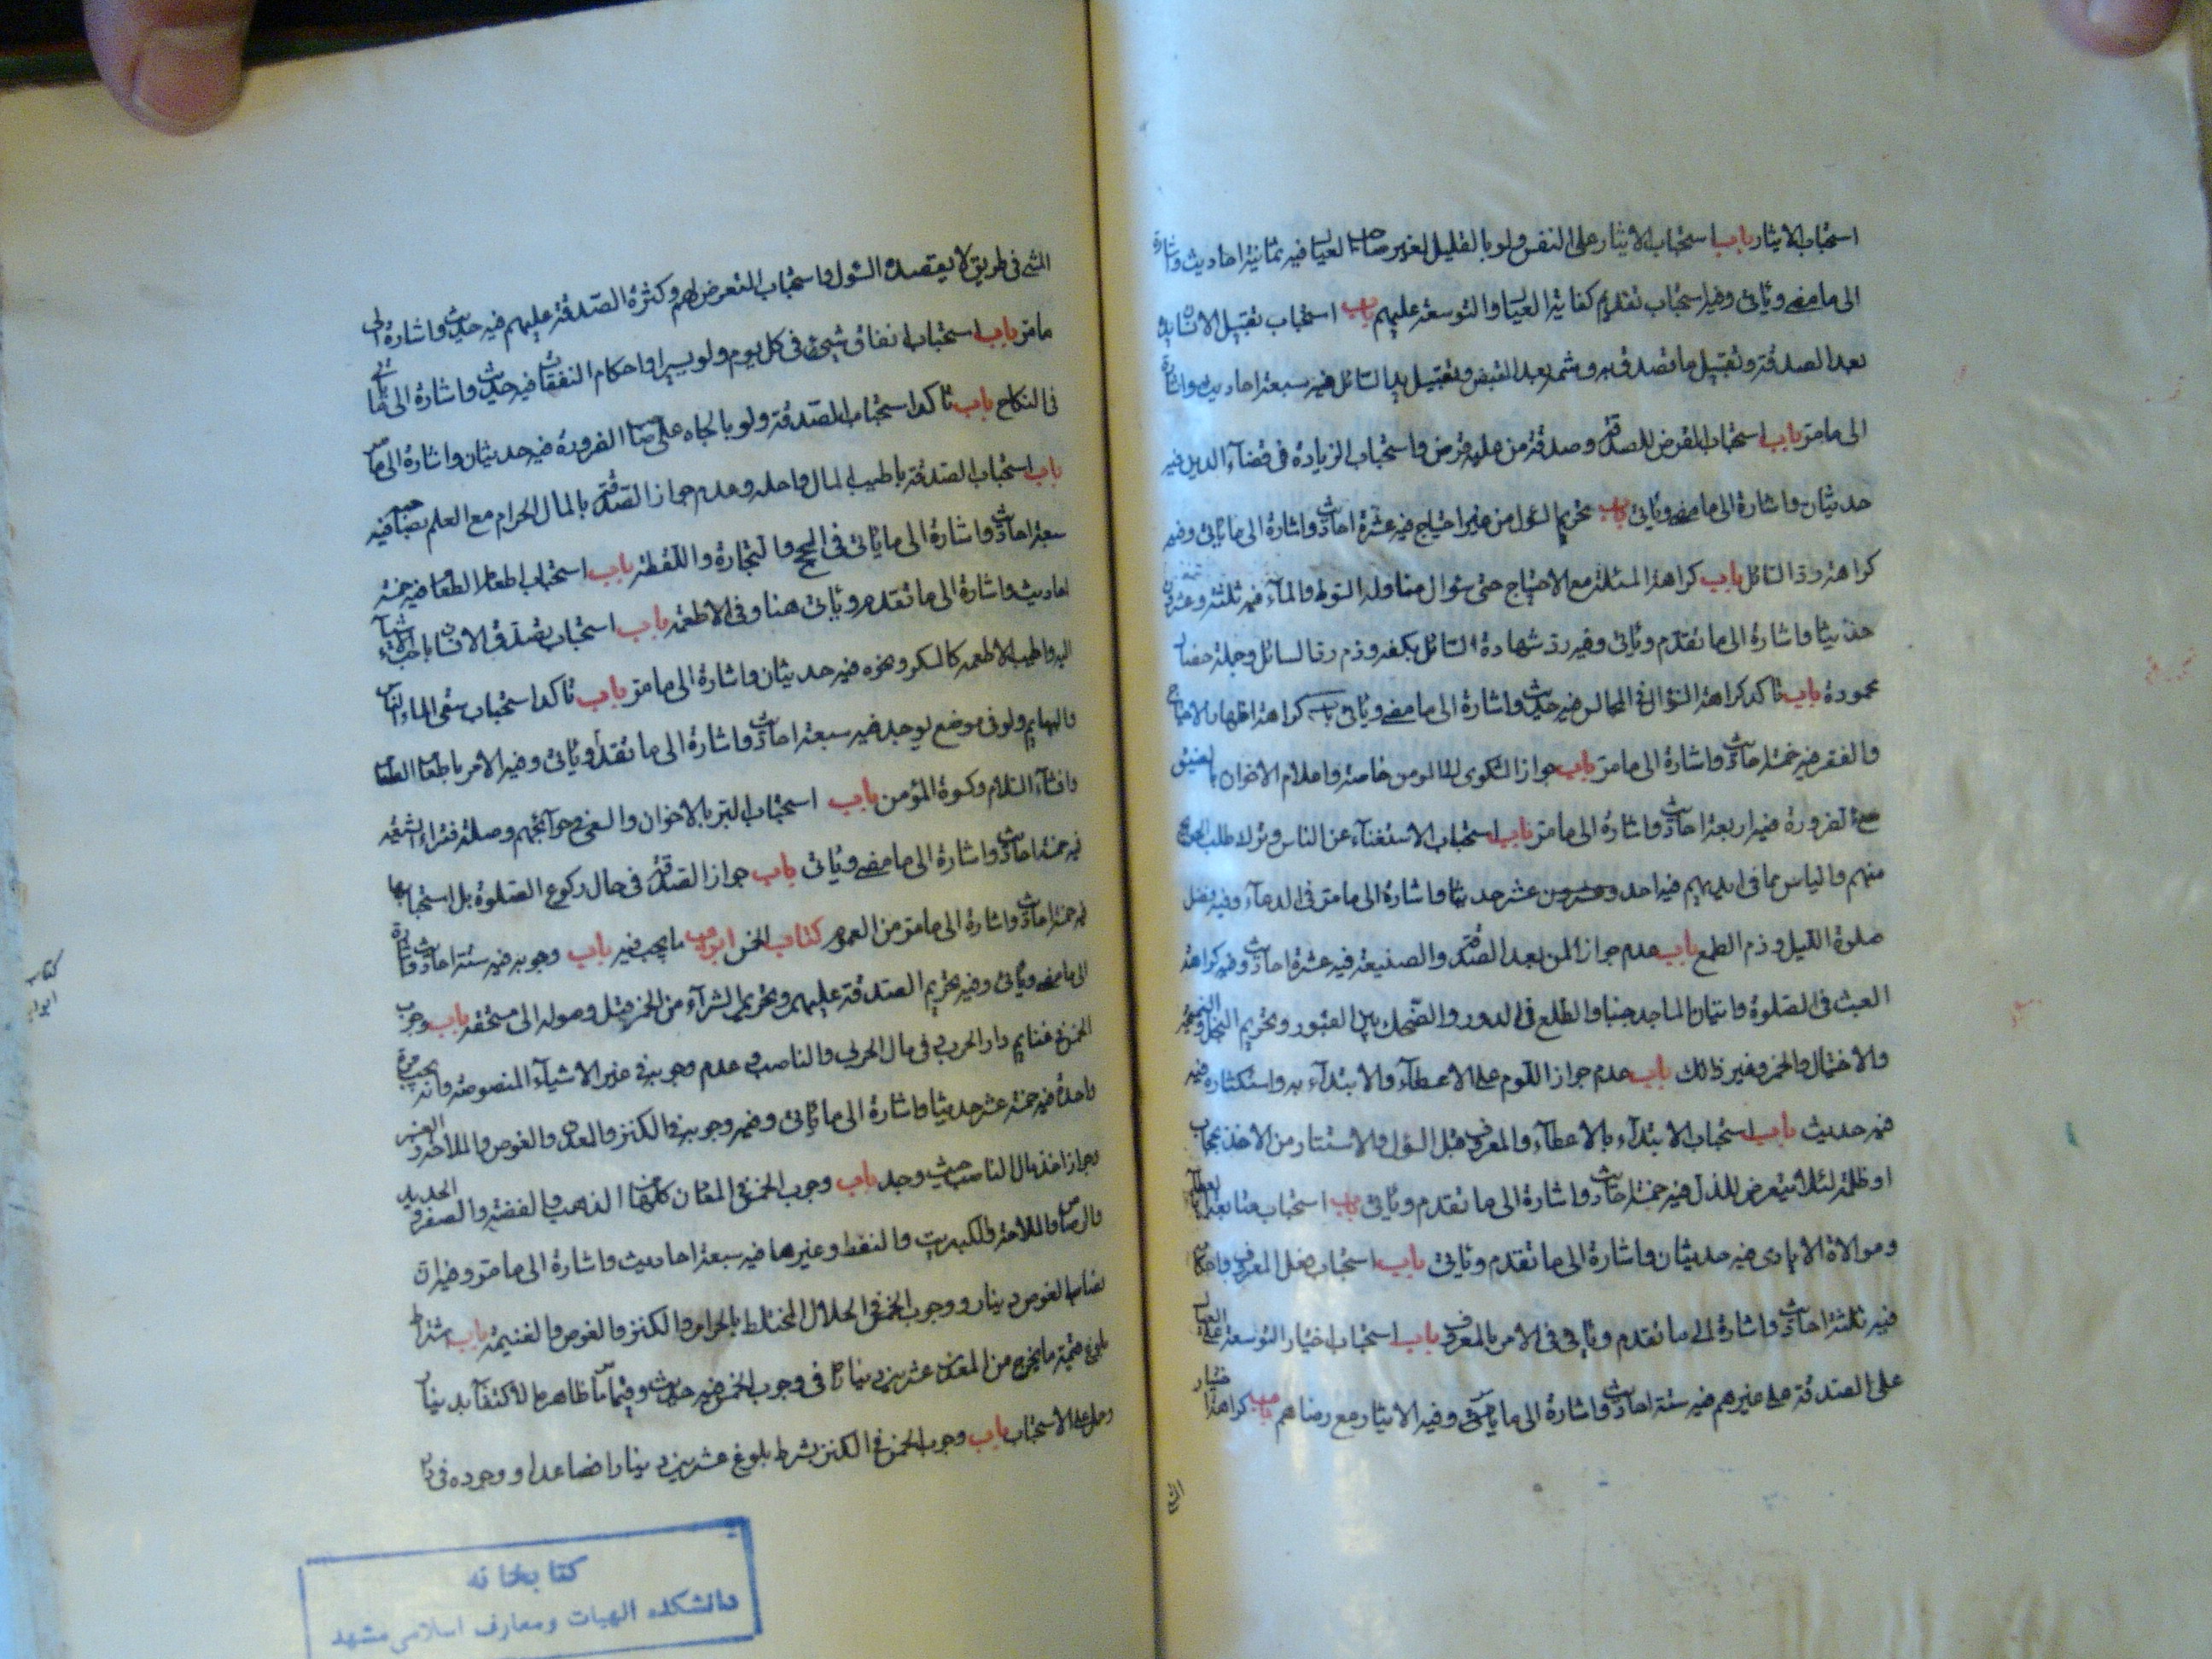 استحباب الايثار باب استحباب الايثار على النفس ولو بالقليل لغير صاحب العيال فيه ثمانية احاديث واشارة
الى ما مضى وياتى وفيه استحباب تقديم كفاية العيال والتوسعة عليهم باب استحباب تقبيل الانسان يده
بعد الصدقة وتقبيل ما تصدق به وشمه بعد القبض وتقبيل يد السائل فيه سبعة احاديث واشارة
الى ما مر باب استحباب القرض للصدقة وصدقة من عليه قرض واستحباب الزيادة فى قضاء الدين فيه
حديثان واشارة الى ما مضى وياتى باب تحريم السؤل من غير احتياج فيه عشرة احاديث واشارة الى ما ياتى وفيه
كراهة رد السائل باب كراهة المسئلة مع الاحتياج حتى سئوال مناولة السوط والماء فيه ثلثة وعشرون
حديثا واشارة الى ما تقدم وياتى وفيه رد شهادة السائل بكفه وذم رد السائل وجملة خصال
محمودة باب تاكد كراهة السؤال فى المجالس فيه حديث واشارة الى ما مضى وياتى باب كراهة اظهار الاحتياج
والفقر فيه خمسة احاديث واشارة الى ما مر باب جواز الشكوى الى المؤمن خاصة واعلام الاخوان بالضيق
مع الضرورة فيه اربعة احاديث واشارة الى ما مر باب استحباب الاستغناء عن الناس وترك طلب الحوائج
منهم والياس مما فى ايديهم فيه احد وعشرون عشر حديثا واشارة الى ما مر فى الدعاء وفيه فضل
صلوة الليل وذم الطمع باب عدم جواز المن بعد الصدقة والصنيعة فيه عشرة احاديث وفيه كراهة
العبث فى الصلوة واتيان المساجد جنبا والتطلع فى الدور والضحك بين القبور وتحريم البخل والنميمة
والاختيال والخمر وغير ذلك باب عدم جواز اللوم على الاعطاء والابتداء به واستكثاره فيه
فيه حديث باب استحباب الابتداء بالاعطاء والمعروف قبل السؤل والاستتار من الاخذ بحجاب
او ظلمة لئلا يتعرض للذل فيه خمسة احاديث واشارة الى ما تقدم وياتى باب استحباب متابعة العطايا
وموالاة الايادى فيه حديثان واشارة الى ما تقدم وياتى باب استحباب فعل المعروف واحكامه
فيه ثلثة احاديث واشارة الى ما تقدم وياتى فى الامر بالمعروف باب استحباب اختيار التوسعة على العيال
على الصدقة على غيرهم فيه ستة احاديث واشارة الى ما ياتى وفيه الايثار مع رضاهم باب كراهة اختيار
المشى فى طريق لا يقصده السئول واستحباب التعرض لهم وكثرة الصدقة عليهم فيه حديث واشارة الى
ما مر باب استحباب انفاق شىء فى كل يوم ولو يسيرا واحكام النفقات فيه حديث واشارة الى ما ياتى
فى النكاح باب تاكد استحباب الصدقة ولو بالجاه على صاحب الضرورة فيه حديثان واشارة الى ما مر
باب استحباب الصدقة باطيب المال واحله وعدم جواز الصدقة بالمال الحرام مع العلم بصاحبه فيه
سبعة احاديث واشارة الى ما ياتى فى الحج والتجارة واللقطة باب استحباب اطعام الطعام فيه خمسة
احاديث واشارة الى ما تقدم وياتى هنا وفى الاطعمة باب استحباب تصدق الانسان باحب الاشياء
اليه واطيب الاطعمة كالسكر ونحوه فيه حديثان واشارة الى ما مر باب تاكد استحباب سقى الماء الناس
والبهايم ولو فى موضع يوجد فيه سبعة احاديث واشارة الى ما تقدم وياتى وفيه الامر باطعام الطعام
وافشاء السلام وكسوة المؤمن باب استحباب البر بالاخوان والسعى فى حوائجهم وصلة فقراء الشيعة
فيه خمسة احاديث واشارة الى ما مضى وياتى باب جواز الصدقة فى حال ركوع الصلوة بل استحبابها
فيه خمسة احاديث واشارة الى ما مر من العموم كتاب الخمس ابواب ما يجب فيه باب وجوبه فيه ستة احاديث واشارة
الى ما مضى وياتى وفيه تحريم الصدقة عليهم وتحريم الشراء من الخمس قبل وصوله الى مستحقه باب وجوب
الخمس فى غنايم دار الحرب وفى مال الحربى والناصب وعدم وجوبه فى غير الاشياء المنصوصة وانه يجب مرة
واحدة فيه خمسة عشر حديثا واشارة الى ما ياتى وفيه وجوبه فى الكنز والمعدن والغوص والملاحة والعنبر
وجواز اخذ مال الناصب حيث وجد باب وجوب الخمس فى المعادن كلها من الذهب والفضة والصفر والحديد
والرصاص والملاحة والكبريت والنفط وغيرها فيه سبعة احاديث واشارة الى ما مر وفيه ان
نصاب الغوص دينار ووجوب الخمس فى الحلال المختلط بالحرام والكنز والغوص والغنيمة باب اشتراط
بلوغ قيمة ما يخرج من المعدن عشرين دينارا فى وجوب الخمس فيه حديث وفيما مر ما ظاهره الاكتفاء بدينار
وحمل على الاستحباب باب وجوب الخمس فى الكنز بشرط بلوغ عشرين دينارا فصاعدا ووجوده فى دار
كتاب
ابواب
كتابخانه
دانشكده الهيات ومعارف اسلامى مشهد